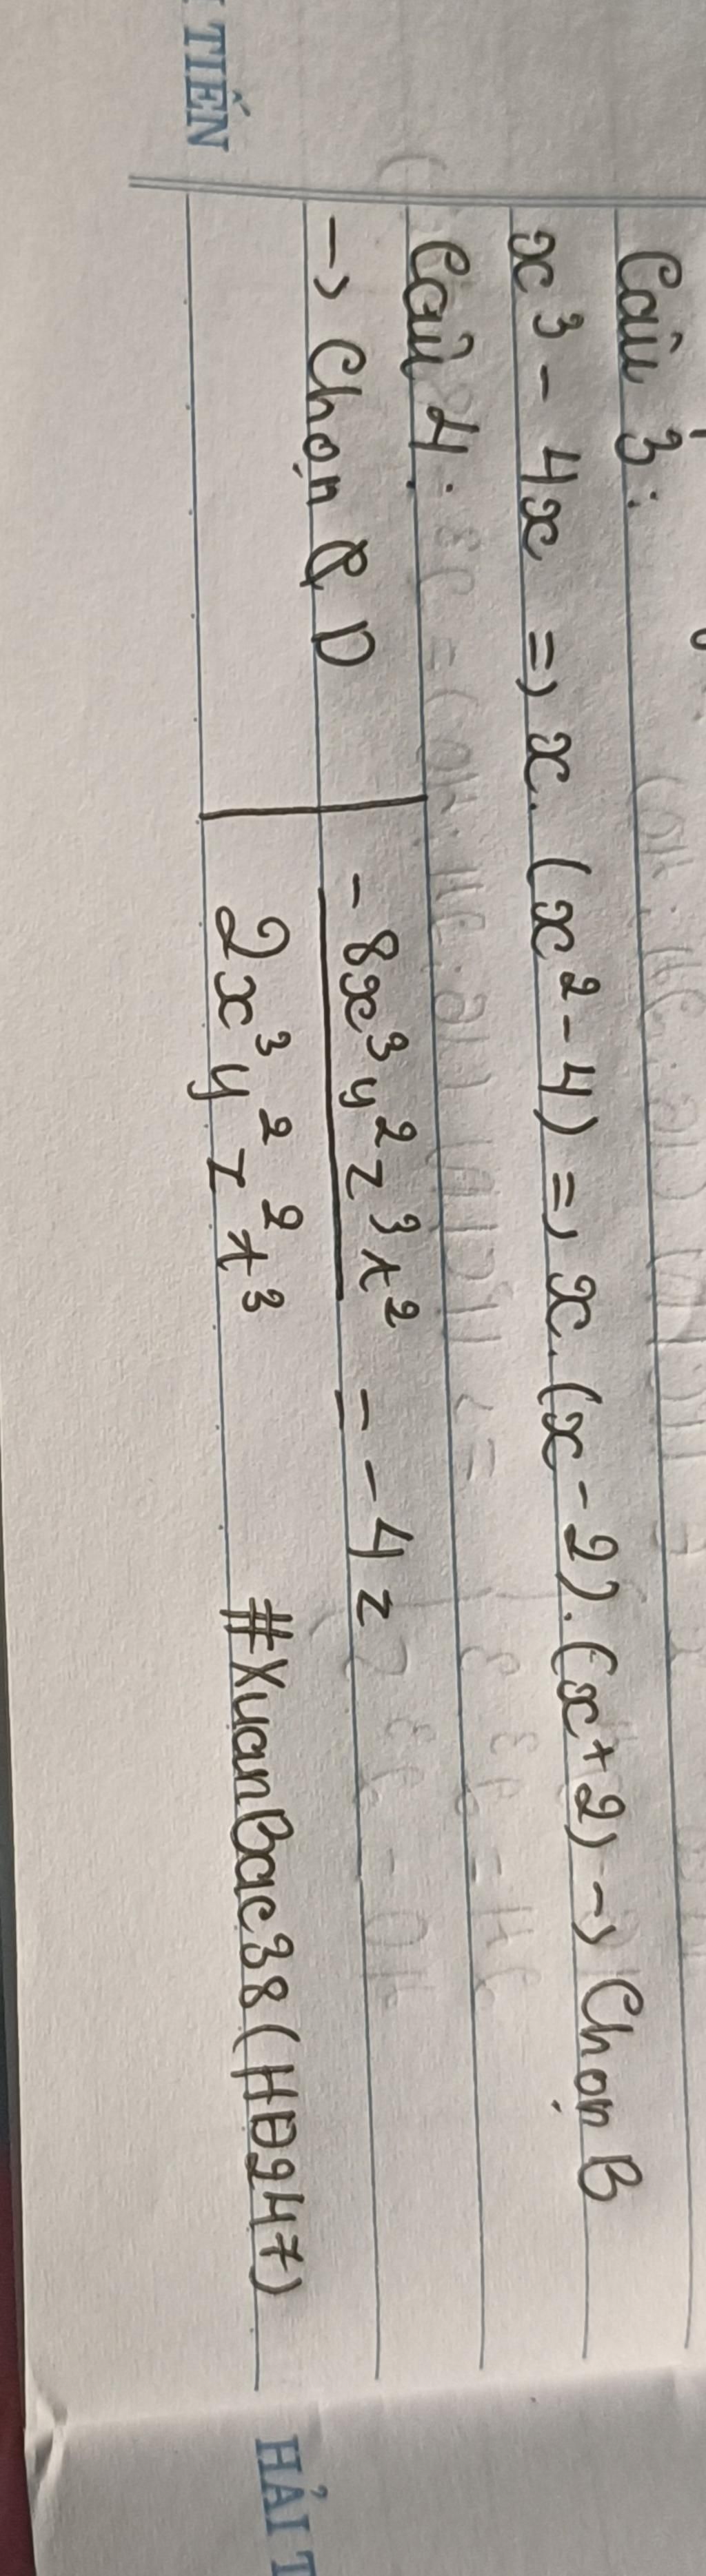 Câu 3:
x³ - 4x => x.(x² - 4) => x.(x - 2).(x + 2) -> Chọn B
Câu 4:
-> Chọn D
-8x³y²z³t² = -4z
2x³y²z²t³
#XuanBac38(HĐ247)
TIẾN
HẢI T